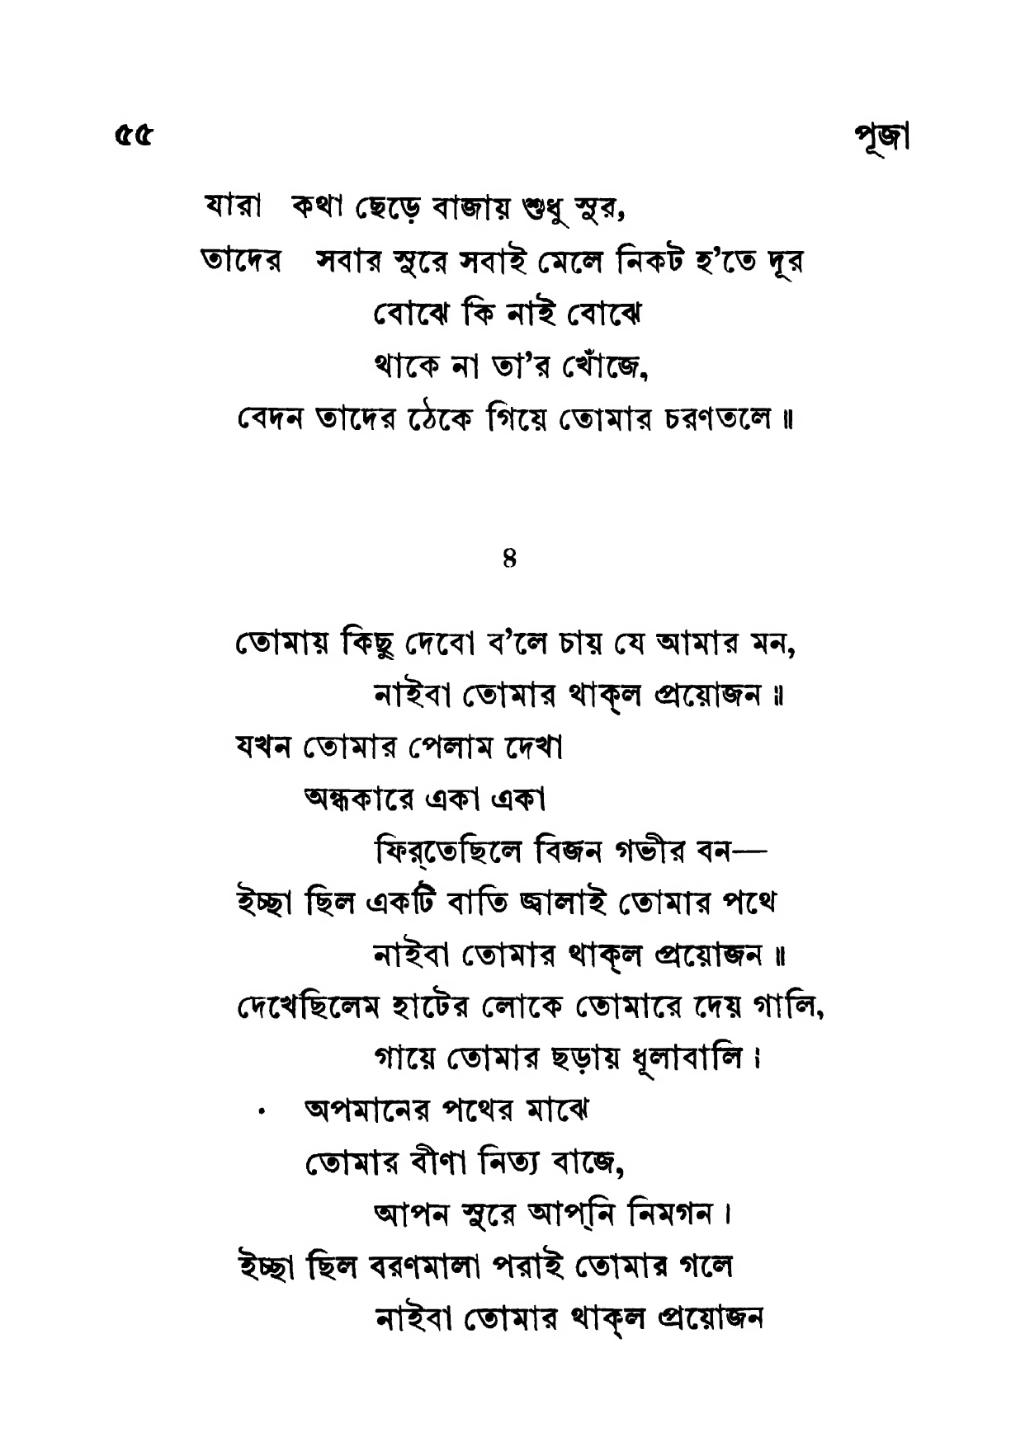 ৫৫ পূজা
যারা কথা ছেড়ে বাজায় শুধু সুর,
তাদের সবার সুরে সবাই মেলে নিকট হ’তে দূর
বোঝে কি নাই বোঝে
থাকে না তা’র খোঁজে,
বেদন তাদের ঠেকে গিয়ে তোমার চরণতলে॥
৪
তোমায় কিছু দেবো ব’লে চায় যে আমার মন,
নাইবা তোমার থাক্‌ল প্রয়োজন॥
যখন তোমার পেলাম দেখা
অন্ধকারে একা একা
ফির্‌তেছিলে বিজন গভীর বন—
ইচ্ছা ছিল একটি বাতি জ্বালাই তোমার পথে
নাইবা তোমার থাক্‌ল প্রয়োজন॥
দেখেছিলেম হাটের লোকে তোমারে দেয় গালি,
গায়ে তোমার ছড়ায় ধূলাবালি।
অপমানের পথের মাঝে
তোমার বীণা নিত্য বাজে,
আপন সুরে আপ্‌নি নিমগন।
ইচ্ছা ছিল বরণমালা পরাই তোমার গলে
নাইবা তোমার থাক্‌ল প্রয়োজন